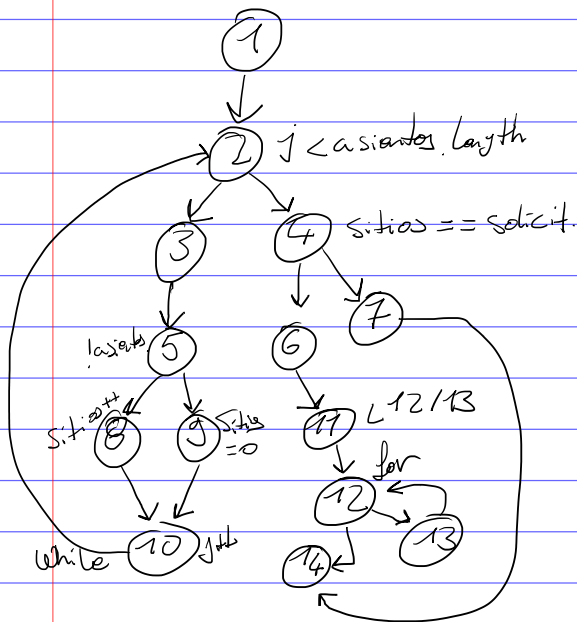 1
2 j < asientos.length
3 4 sitios == solicit.
7
!asientos 5 6
sitios++ 8 9 sitios
=0
11 L 12/13
for
12
13
while 10 j++ 14